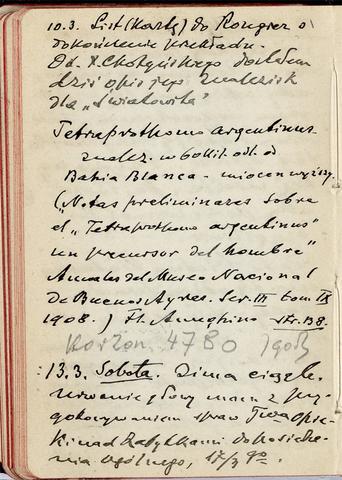 10.3. List (kartę) do Kongres o
dokończeniu przekładu.
Od X. Chotyńskiego dostałem
dziś opis jego znalezisk
dla „Światowita”
Tetraprothomo argentinus
znalez. w okol. od
Bahia Blanca - miocen wyższy.
(„Notas preliminares sobre
el „Tetraprothomo argentinus”
un precursor del hombre”
Anales del Museo Nacional
de Buenos Ayres. Ser. III tom IX
1908.) Fl. Ameghino str. 138.
Korzon. 4780 1 godz
13.3. Sobota. Zima ciągle.
głowy mam z
spraw Twa Opie-
ki nad Zabytkami do posiedze-
nia ogólnego, 17/3 go.